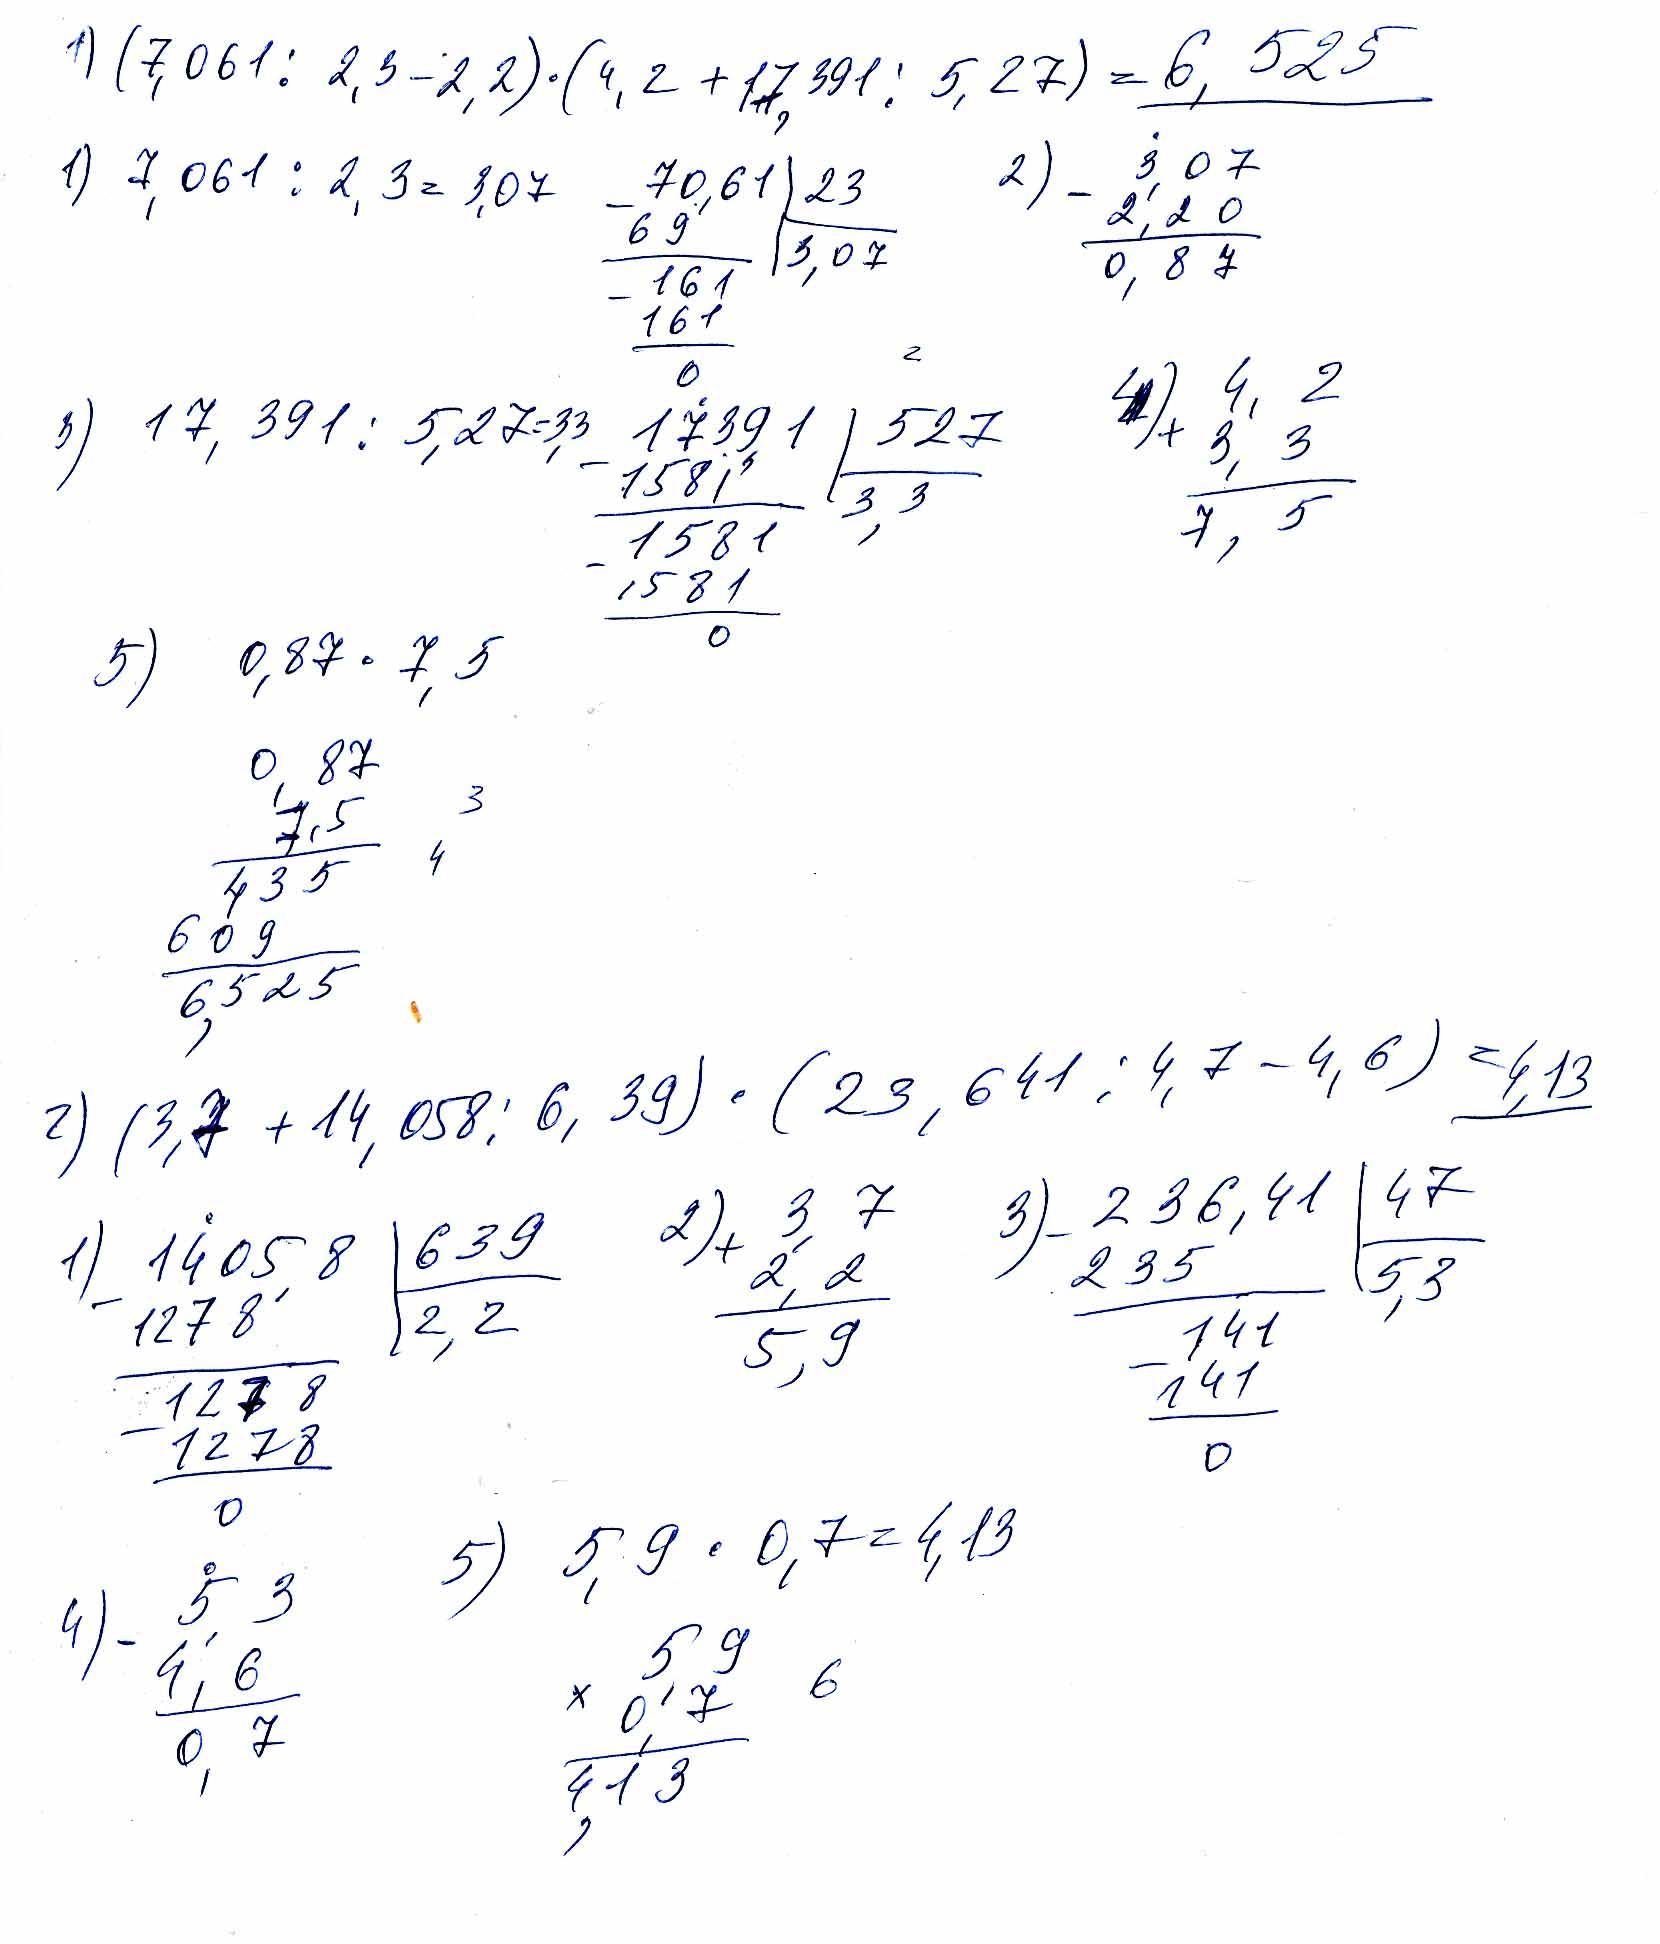 1) (7,061 : 2,3 - 2,2) · (4,2 + 17,391 : 5,27) = 6,525
1) 7,061 : 2,3 = 3,07
- 70,61 | 23
69 | 3,07
- 161
161
0
2) - 3,07
2,20
0,87
=
3) 17,391 : 5,27 = 3,3
- 1739,1 | 527
1581 | 3,3
- 1581
1581
0
4) + 4,2
3,3
7,5
5) 0,87 · 7,5
0,87
7,5 3
435 4
609
6,525
2) (3,7 + 14,058 : 6,39) · (23,641 : 4,7 - 4,6) = 4,13
1) - 1405,8 | 639
1278 | 2,2
- 1278
1278
0
2) + 3,7
2,2
5,9
3) - 236,41 | 47
235 | 5,3
- 141
141
0
4) - 5,3
4,6
0,7
5) 5,9 · 0,7 = 4,13
5,9
× 0,7 6
4,13